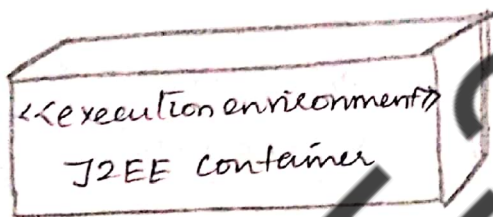 <<execution environment>>
J2EE Container